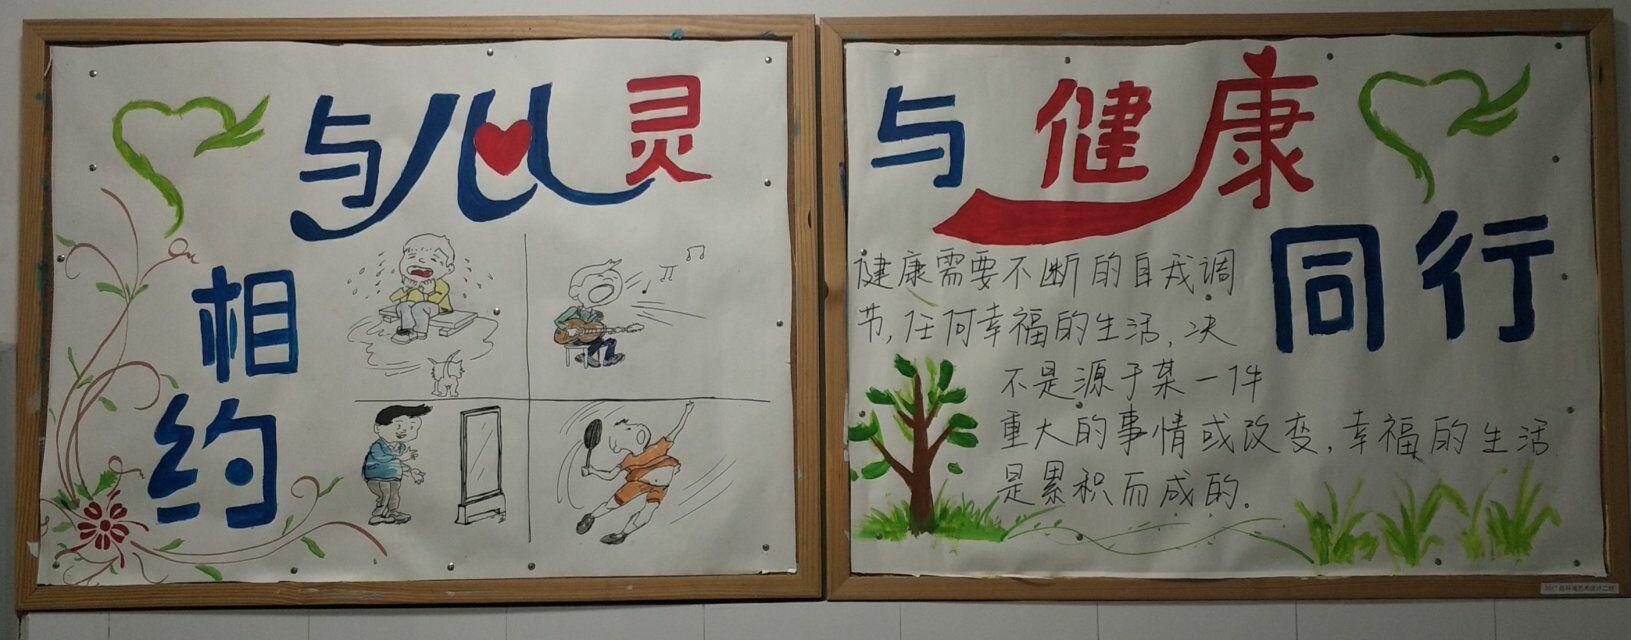 与心灵
相
约
与健康
同行
健康需要不断的自我调
节,任何幸福的生活,决
不是源于某一件
重大的事情或改变,幸福的生活
是累积而成的.